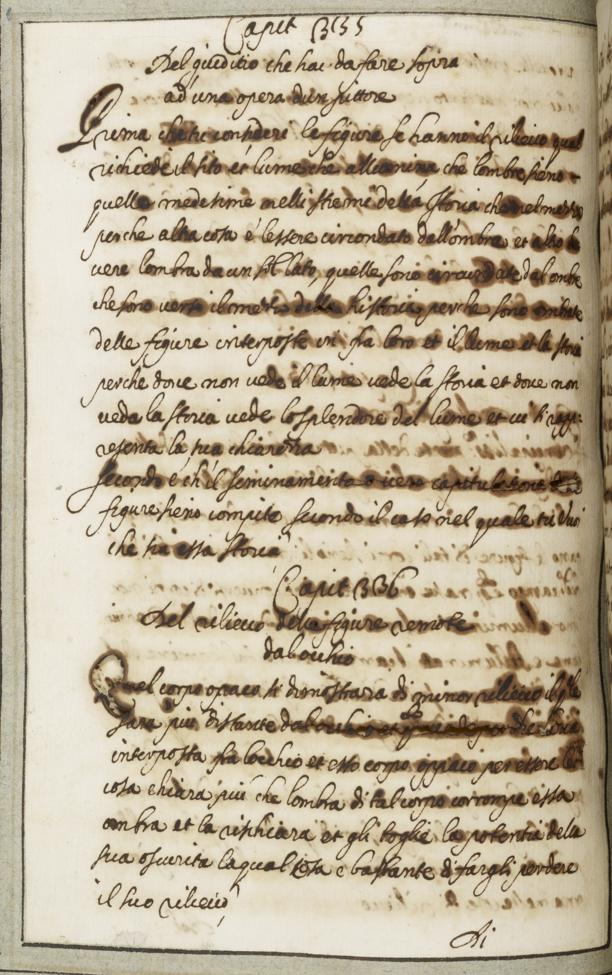 Capit 335
Del giuditio che hai da fare sopra
ad una opera d'un pittore
Prima che tu consideri le figure se hanno il rilievo qual
richiede il sito et lume che allumina che lombre sieno
quelle medesime nelli stremi della storia che nel mezzo
perche altra cosa é lessere circondato dall'ombra et altro
vere lombra da un sol lato, quelle sono circundate dal ombre
che sono verso il mezzo della historia perche sono ombrate
delle figure interposte in fra loro et il lume et la storia
perche dove non vede il lume vede la storia et dove non
veda la storia vede lo splendore del lume et vi si rapp-
resenta la sua chiarezza
Secondo é ch'il seminamento overo
figure sieno compite secondo il caso nel quale tu vuoi
che sia essa storia
Capit 336
Del rilievo delle figure remote
dal occhio
Quel corpo opaco si dimostrara di minor rilievo il qle
sara piu distante dal occhio
interposta fra locchio et esso corpo oppaco per essere
cosa chiara piú che lombra di tal corpo corrompe essa
ombra et la rischiara et gli toglie la potentia della
sua oscurita laqual cosa é bastante di fargli perdere
il suo rilievo
Di